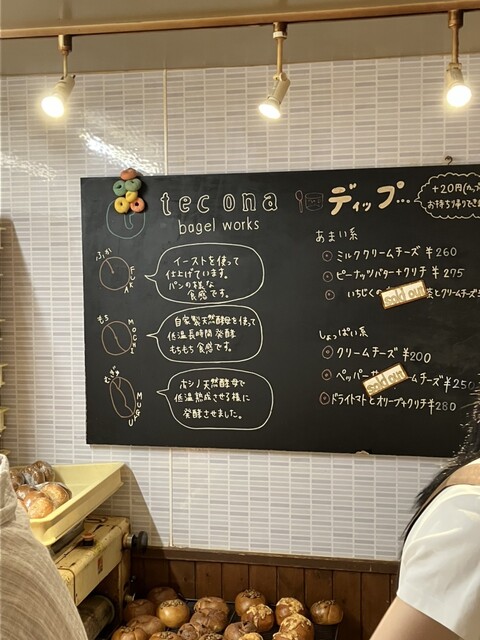 tecona
bagel works
ふか
FUKA
イーストを使って
仕上げています。
パンの様な
食感です。
もち
MOCHI
自家製天然酵母を使って
低温長時間発酵
もちもち食感です。
むぎゅ
MUGYU
ホシノ天然酵母で
低温熟成させる様に
発酵させました。
ディップ...
+20円(カップ
お持ち帰りでき
あまい系
ミルククリームチーズ ¥260
ピーナッツバター+クリチ ¥275
いちじくの sold out 茶とクリームチーズ
しょっぱい系
クリームチーズ ¥200
ペッパー sold out ームチーズ ¥250
ドライトマトとオリーブ+クリチ ¥280